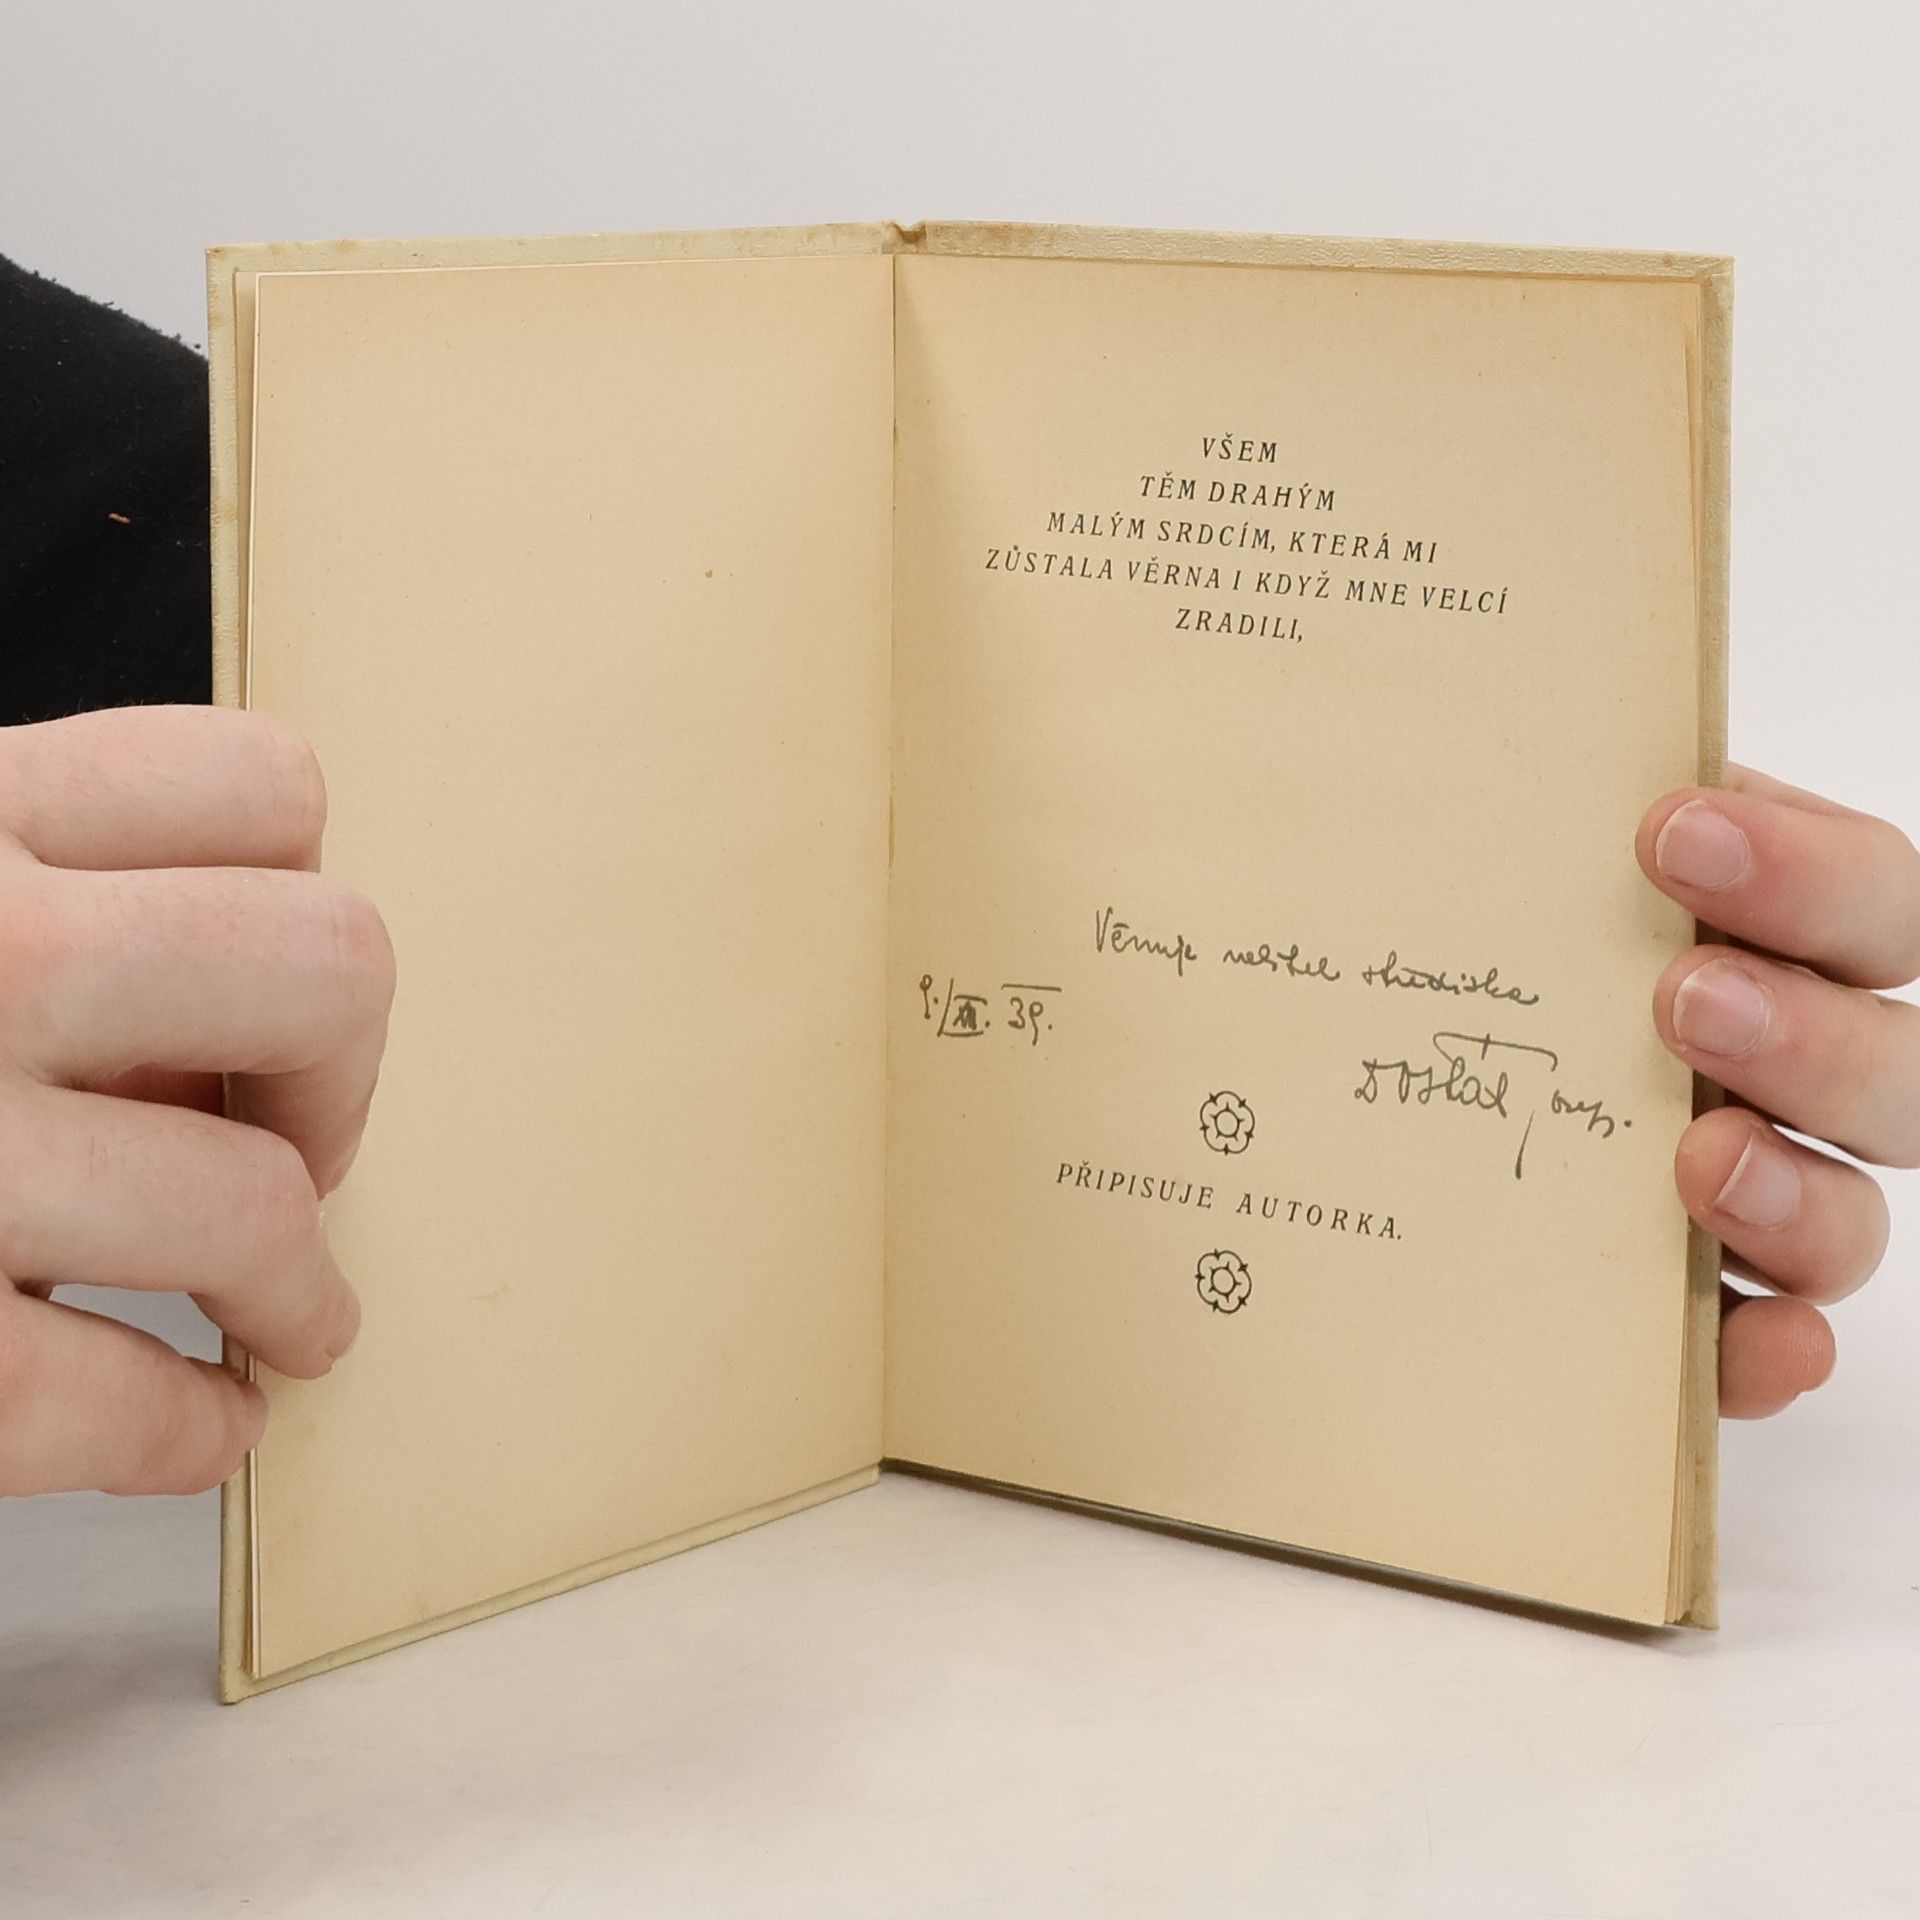 VŠEM
TĚM DRAHÝM
MALÝM SRDCÍM, KTERÁ MI
ZŮSTALA VĚRNA I KDYŽ MNE VELCÍ
ZRADILI,
Věnuje velitel střediska
9./XII. 39.
Dostál Josef.
PŘIPISUJE AUTORKA.